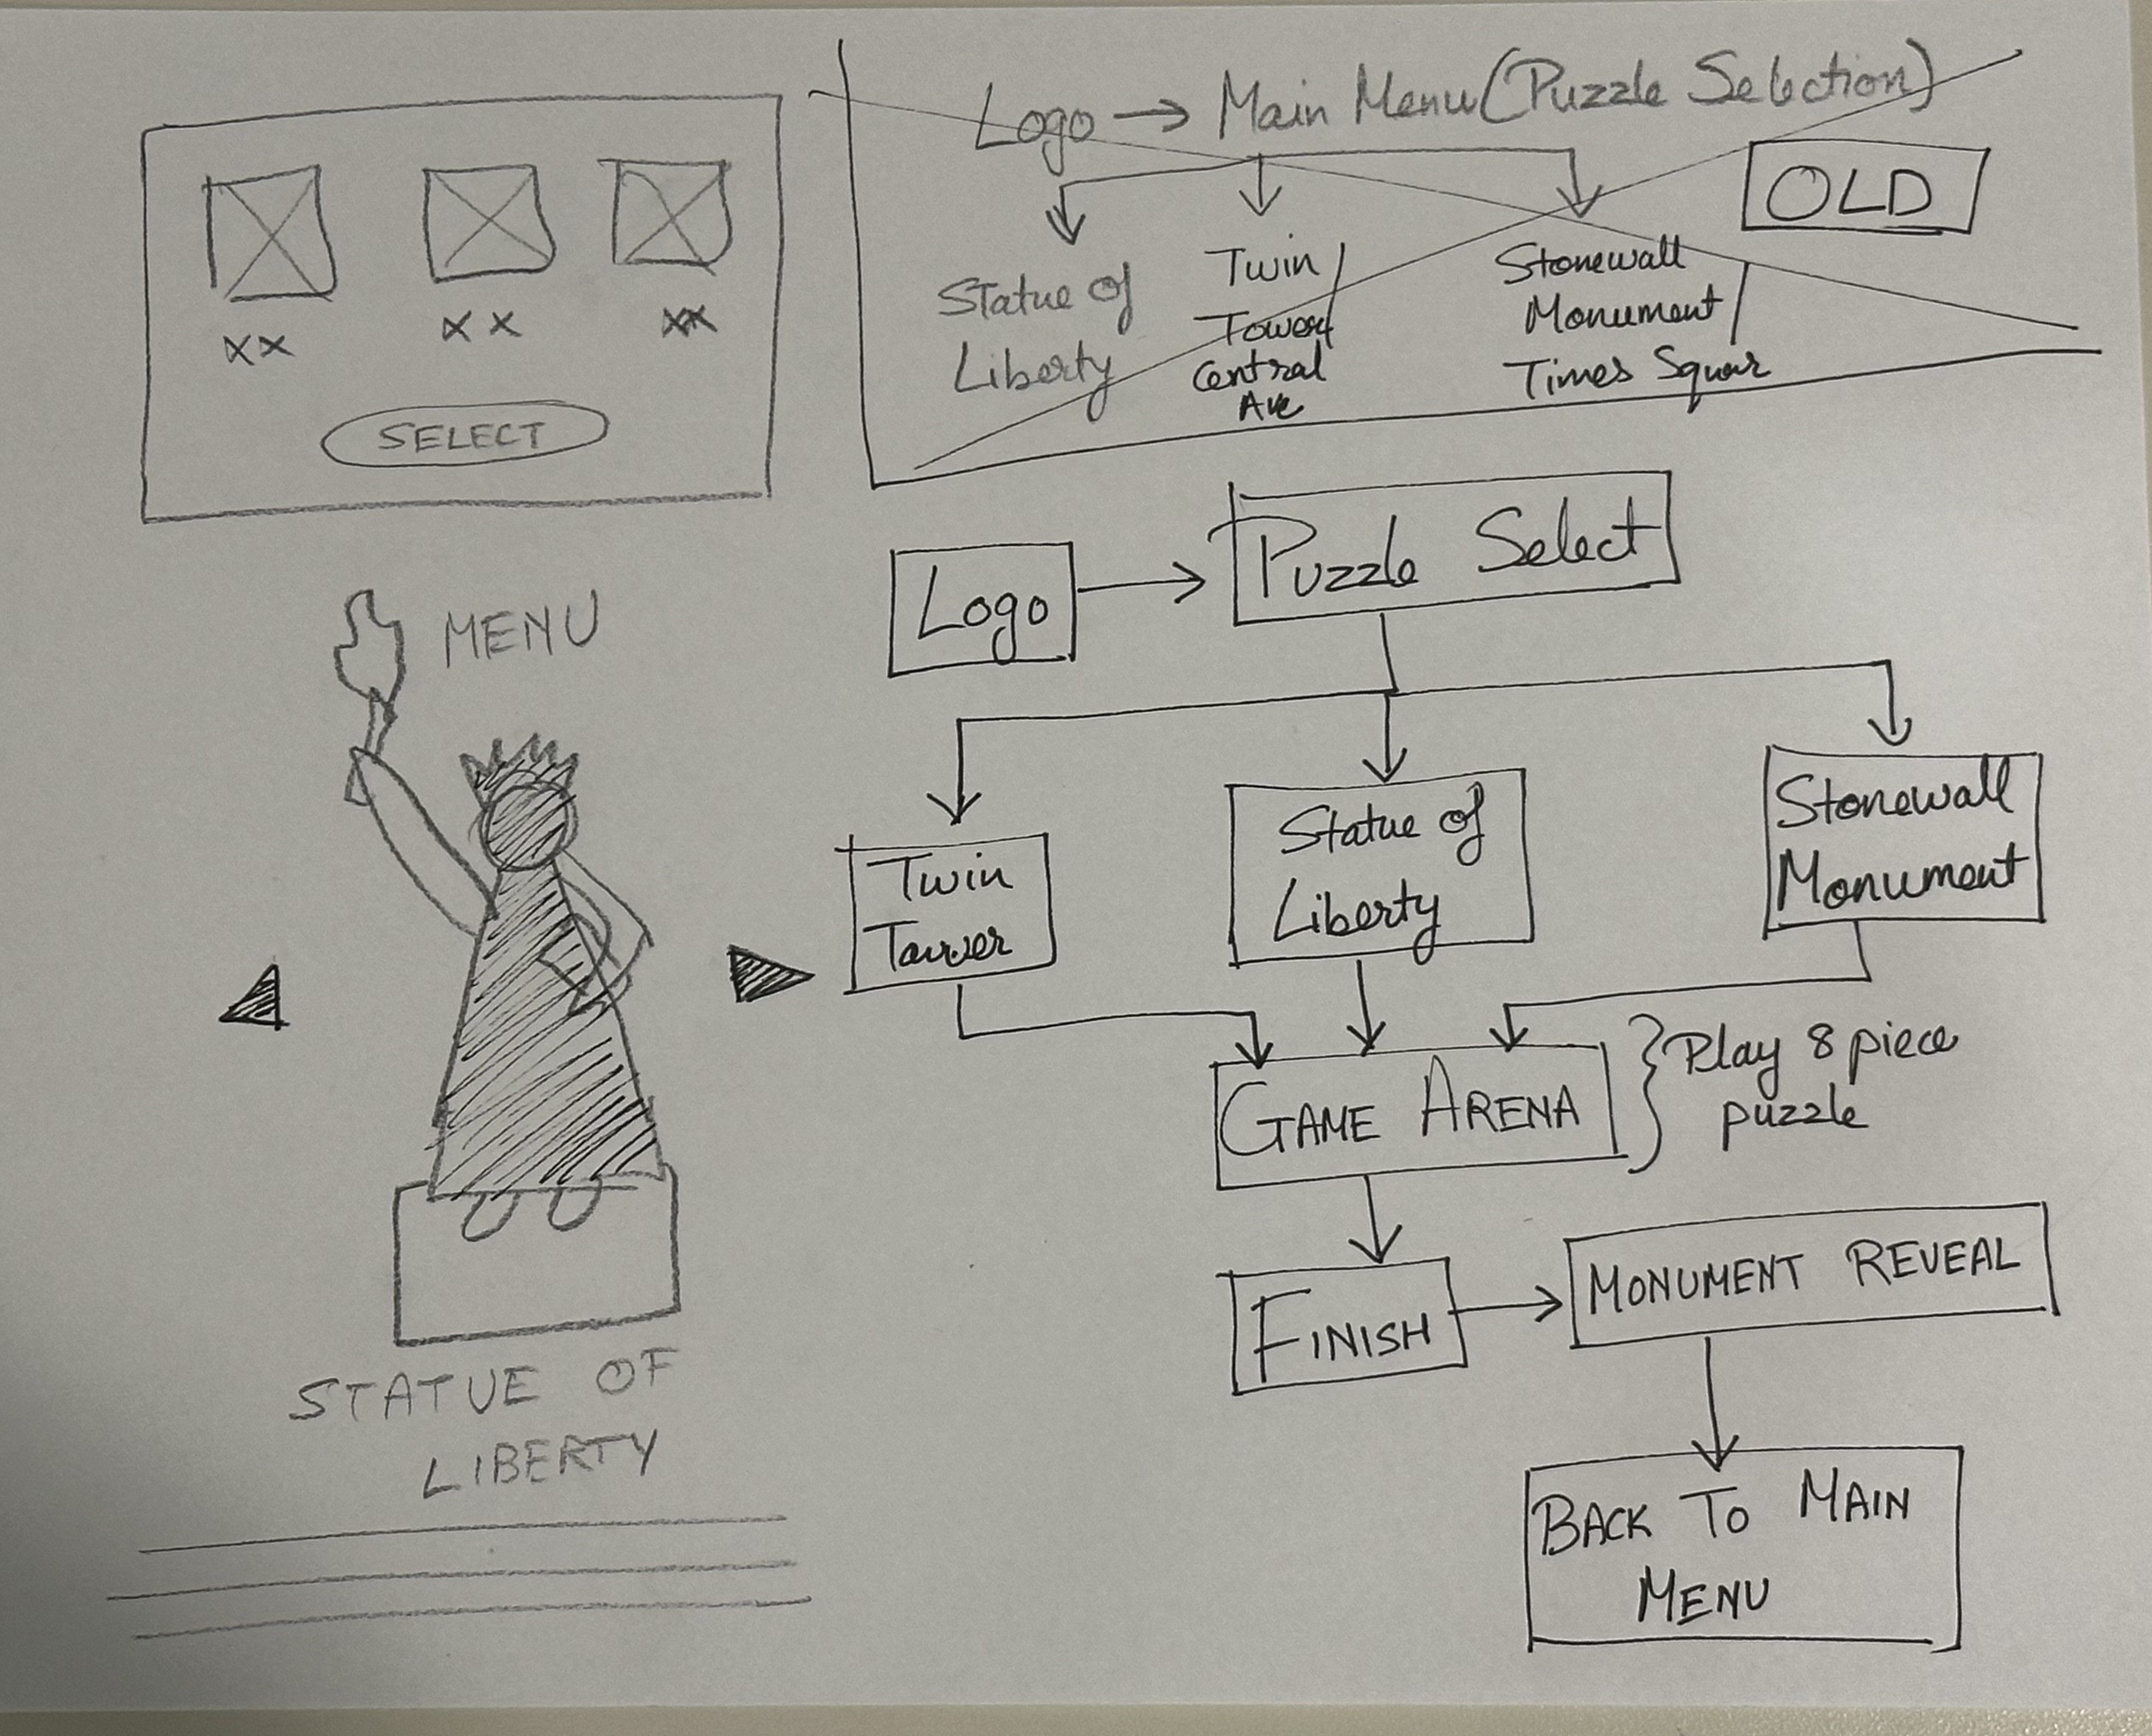 Logo → Main Menu (Puzzle Selection)
OLD
Statue of
Liberty
Twin /
Tower
Central
Ave
Stonewall
Monument /
Times Squar
XX
XX
XX
SELECT
Logo
Puzzle Select
MENU
Twin
Tower
Statue of
Liberty
Stonewall
Monument
GAME ARENA
Play 8 piece
puzzle
FINISH
MONUMENT REVEAL
BACK TO MAIN
MENU
STATUE OF
LIBERTY